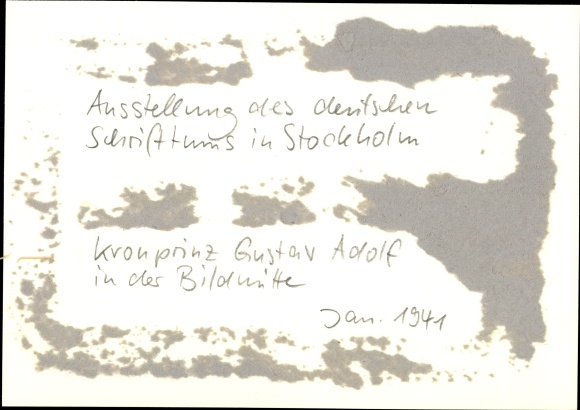 Ausstellung des deutschen
Schrifttums in Stockholm
Kronprinz Gustav Adolf
in der Bildmitte
Jan. 1941